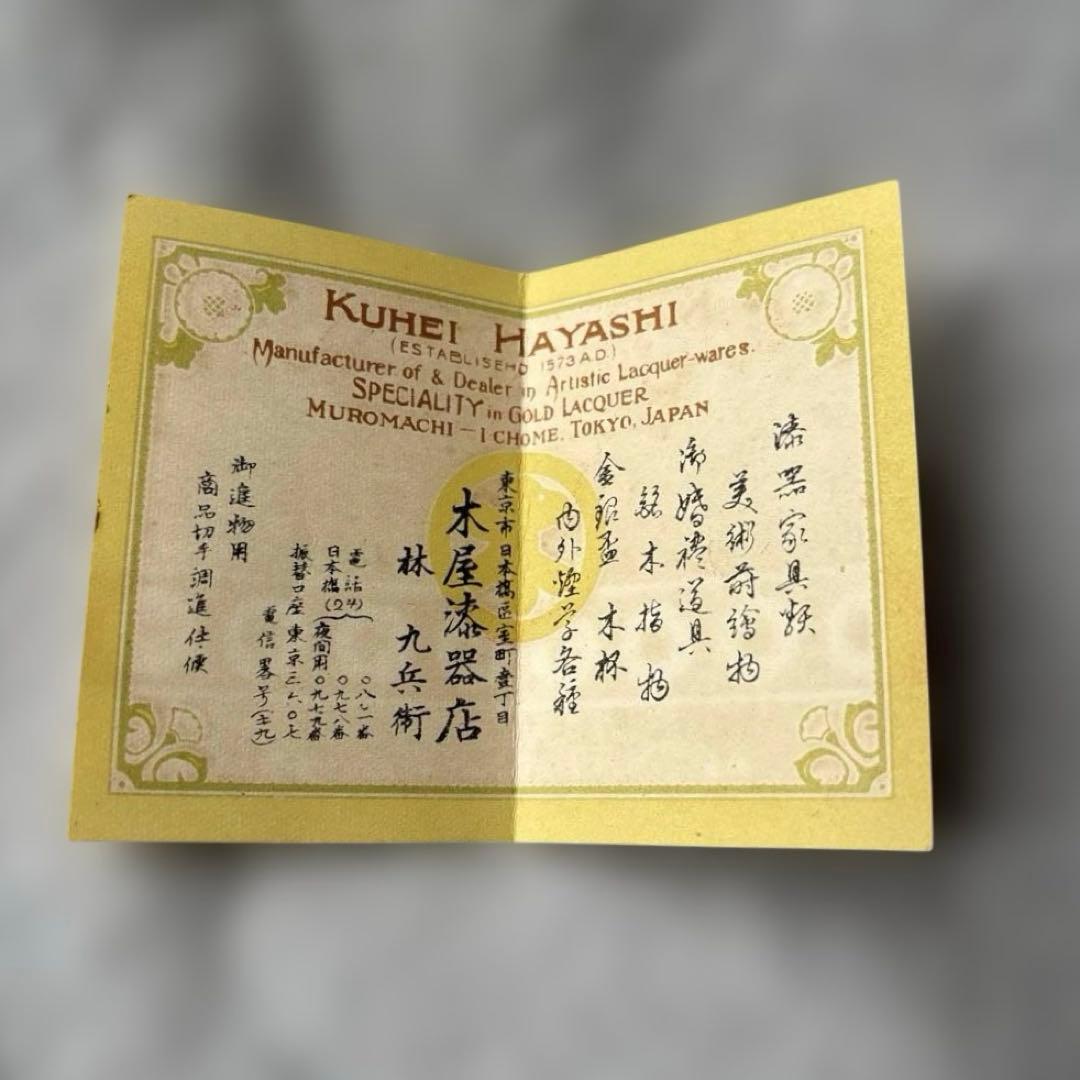 KUHEI HAYASHI
(ESTABLISEHD 1573 A.D.)
Manufacturer of & Dealer in Artistic Lacquer-wares.
SPECIALITY in GOLD LACQUER
MUROMACHI—1 CHOME, TOKYO, JAPAN
漆器家具類
美術蒔繪物
御婚禮道具
銘木指物
金銀盃 木杯
内外煙学各種
東京市日本橋區室町壹丁目
木屋漆器店
林九兵衛
電話
日本橋(24)
〇八一一番
〇九七八番
夜間用〇九七九番
振替口座東京三六〇七
電信畧号(キ九)
御進物用
商品切手調進仕候